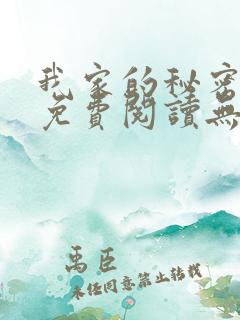 我家的秘密
免費閱讀無
禹臣
未经同意禁止转载